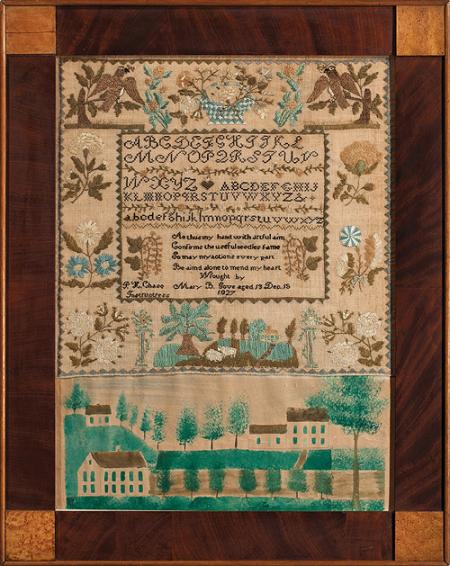 ABCDEFGHIJKL
MNOPQRSTUV
WXYZ ABCDEFGHIJ
KLMNOPQRSTUVWXYZ&
abcdefghijklmnopqrstuvwxyz
As thus my hand with artful aim
Confirms the useful needles fame
So may my actions every part
Be aimd alone to mend my heart
Wrought by
P. H. Chase Mary B. Gove aged 13 Dec. 18
Instructress 1827